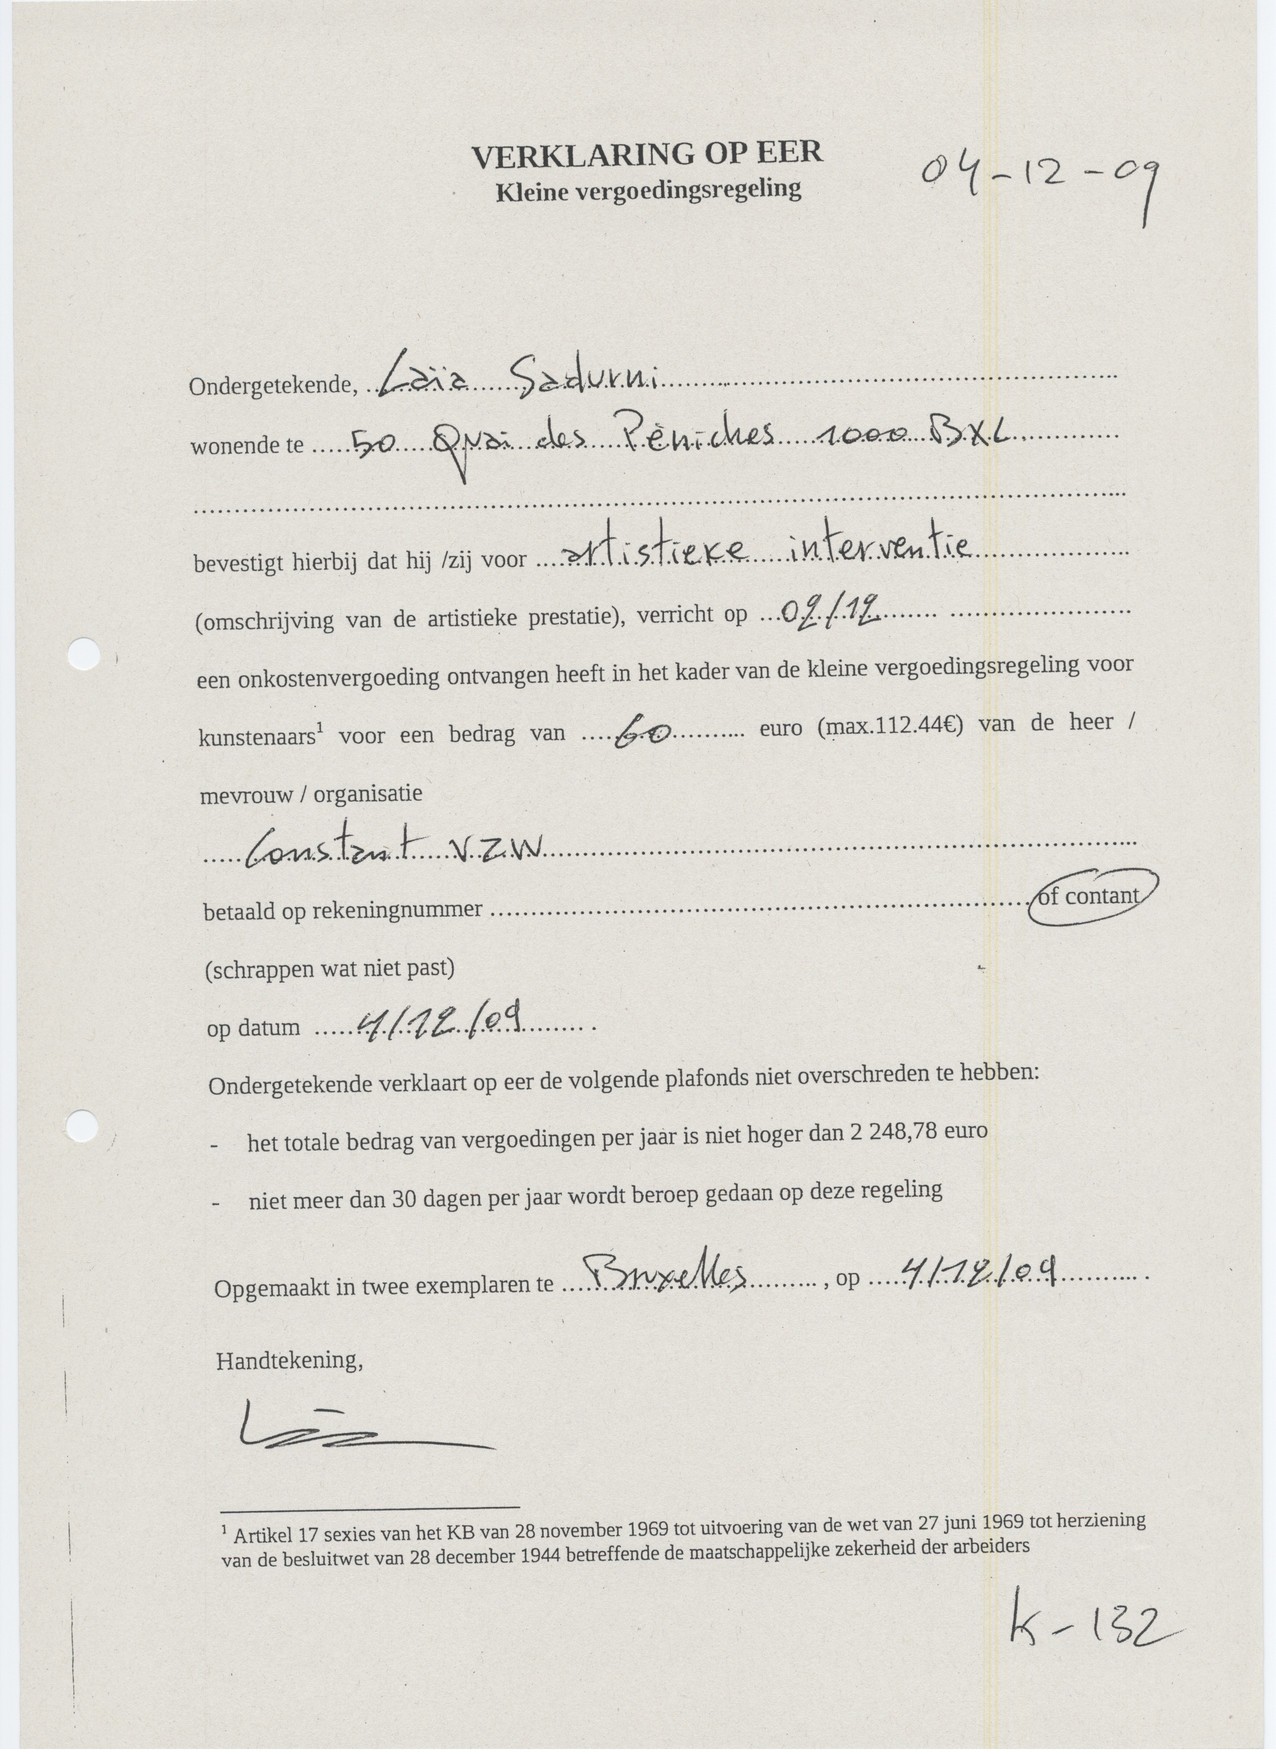 VERKLARING OP EER
Kleine vergoedingsregeling
04-12-09
Ondergetekende, Laïa Sadurni
wonende te 50 Quai des Pèniches 1000 BXL
bevestigt hierbij dat hij /zij voor artistieke interventie
(omschrijving van de artistieke prestatie), verricht op 02/12
een onkostenvergoeding ontvangen heeft in het kader van de kleine vergoedingsregeling voor
kunstenaars¹ voor een bedrag van 60 euro (max.112.44€) van de heer /
mevrouw / organisatie
Constant V.Z.W
betaald op rekeningnummer of contant
(schrappen wat niet past)
op datum 4/12/09
Ondergetekende verklaart op eer de volgende plafonds niet overschreden te hebben:
- het totale bedrag van vergoedingen per jaar is niet hoger dan 2 248,78 euro
- niet meer dan 30 dagen per jaar wordt beroep gedaan op deze regeling
Opgemaakt in twee exemplaren te Bruxelles, op 4/12/09.
Handtekening,
¹ Artikel 17 sexies van het KB van 28 november 1969 tot uitvoering van de wet van 27 juni 1969 tot herziening
van de besluitwet van 28 december 1944 betreffende de maatschappelijke zekerheid der arbeiders
K-132